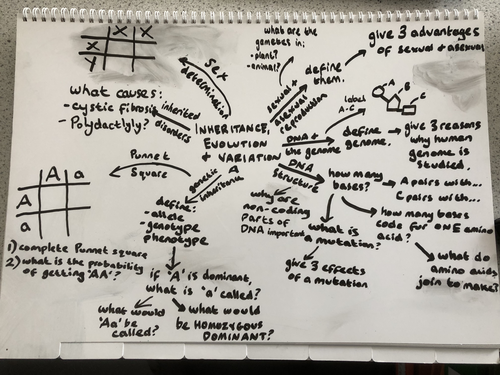 X X
X
Y
sex
determination
what are the
gametes in:
- plant?
- animal?
give 3 advantages
of sexual + asexual
sexual +
asexual
reproduction
define
them.
what causes:
- cystic fibrosis
- Polydactlyly?
inherited
disorders
INHERITANCE,
EVOLUTION
& VARIATION
DNA +
the genome
label
A-C
A
B
C
define
genome.
give 3 reasons
why human
genome is
studied.
Punnet
Square
A a
A
a
1) complete Punnet square
2) what is the probability
of getting 'AA'?
genetic
inheritance
define:
- allele
- genotype
phenotype
if 'A' is dominant,
what is 'a' called?
what would
'Aa' be
called?
what would
be HOMOZYGOUS
DOMINANT?
DNA
structure
how many
bases?
A pairs with...
C pairs with...
how many bases
code for ONE amino
acid?
what do
amino acids
join to make?
why are
non-coding
parts of
DNA important
what is
a mutation?
give 3 effects
of a mutation